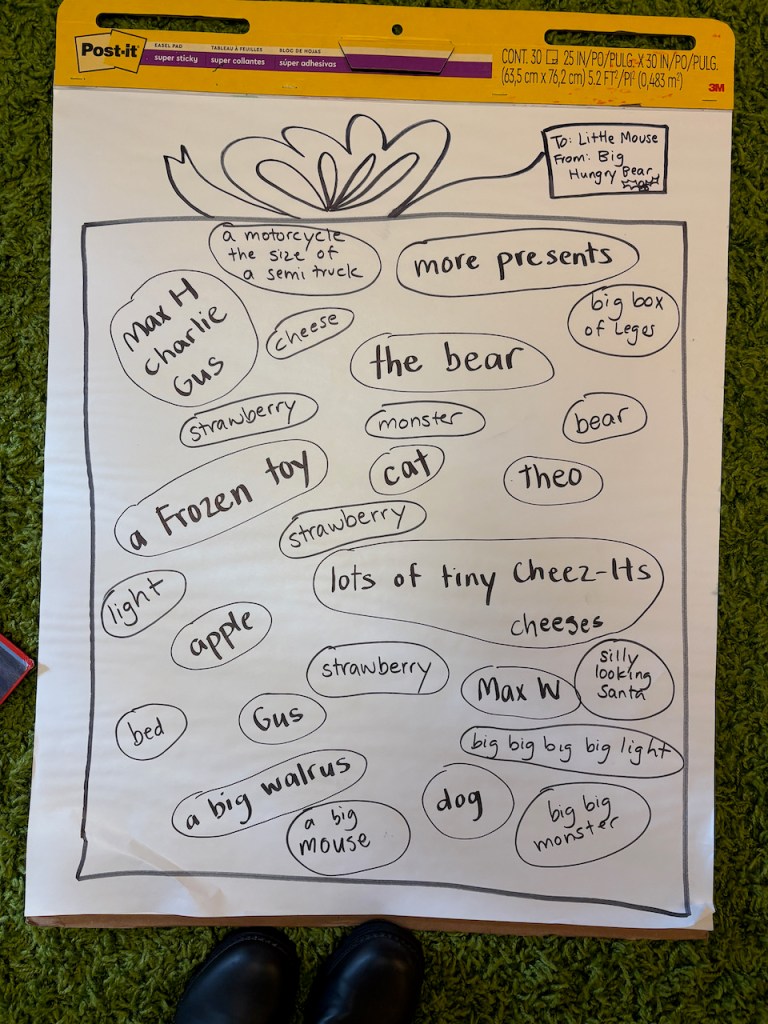 Post-it
EASEL PAD
super sticky
TABLEAU À FEUILLES
super collantes
BLOC DE HOJAS
súper adhesivas
CONT. 30 25 IN/PO/PULG. X 30 IN/PO/PULG.
(63,5 cm x 76,2 cm) 5.2 FT²/PI² (0,483 m²)
3M
To: Little Mouse
From: Big
Hungry Bear
a motorcycle
the size of
a semi truck
more presents
Max H
Charlie
Gus
cheese
big box
of Leges
the bear
strawberry
monster
bear
a Frozen toy
cat
Theo
strawberry
lots of tiny Cheez-Its
cheeses
light
apple
strawberry
Max W
silly
looking
Santa
bed
Gus
big big big big light
a big walrus
dog
a big
mouse
big big
monster